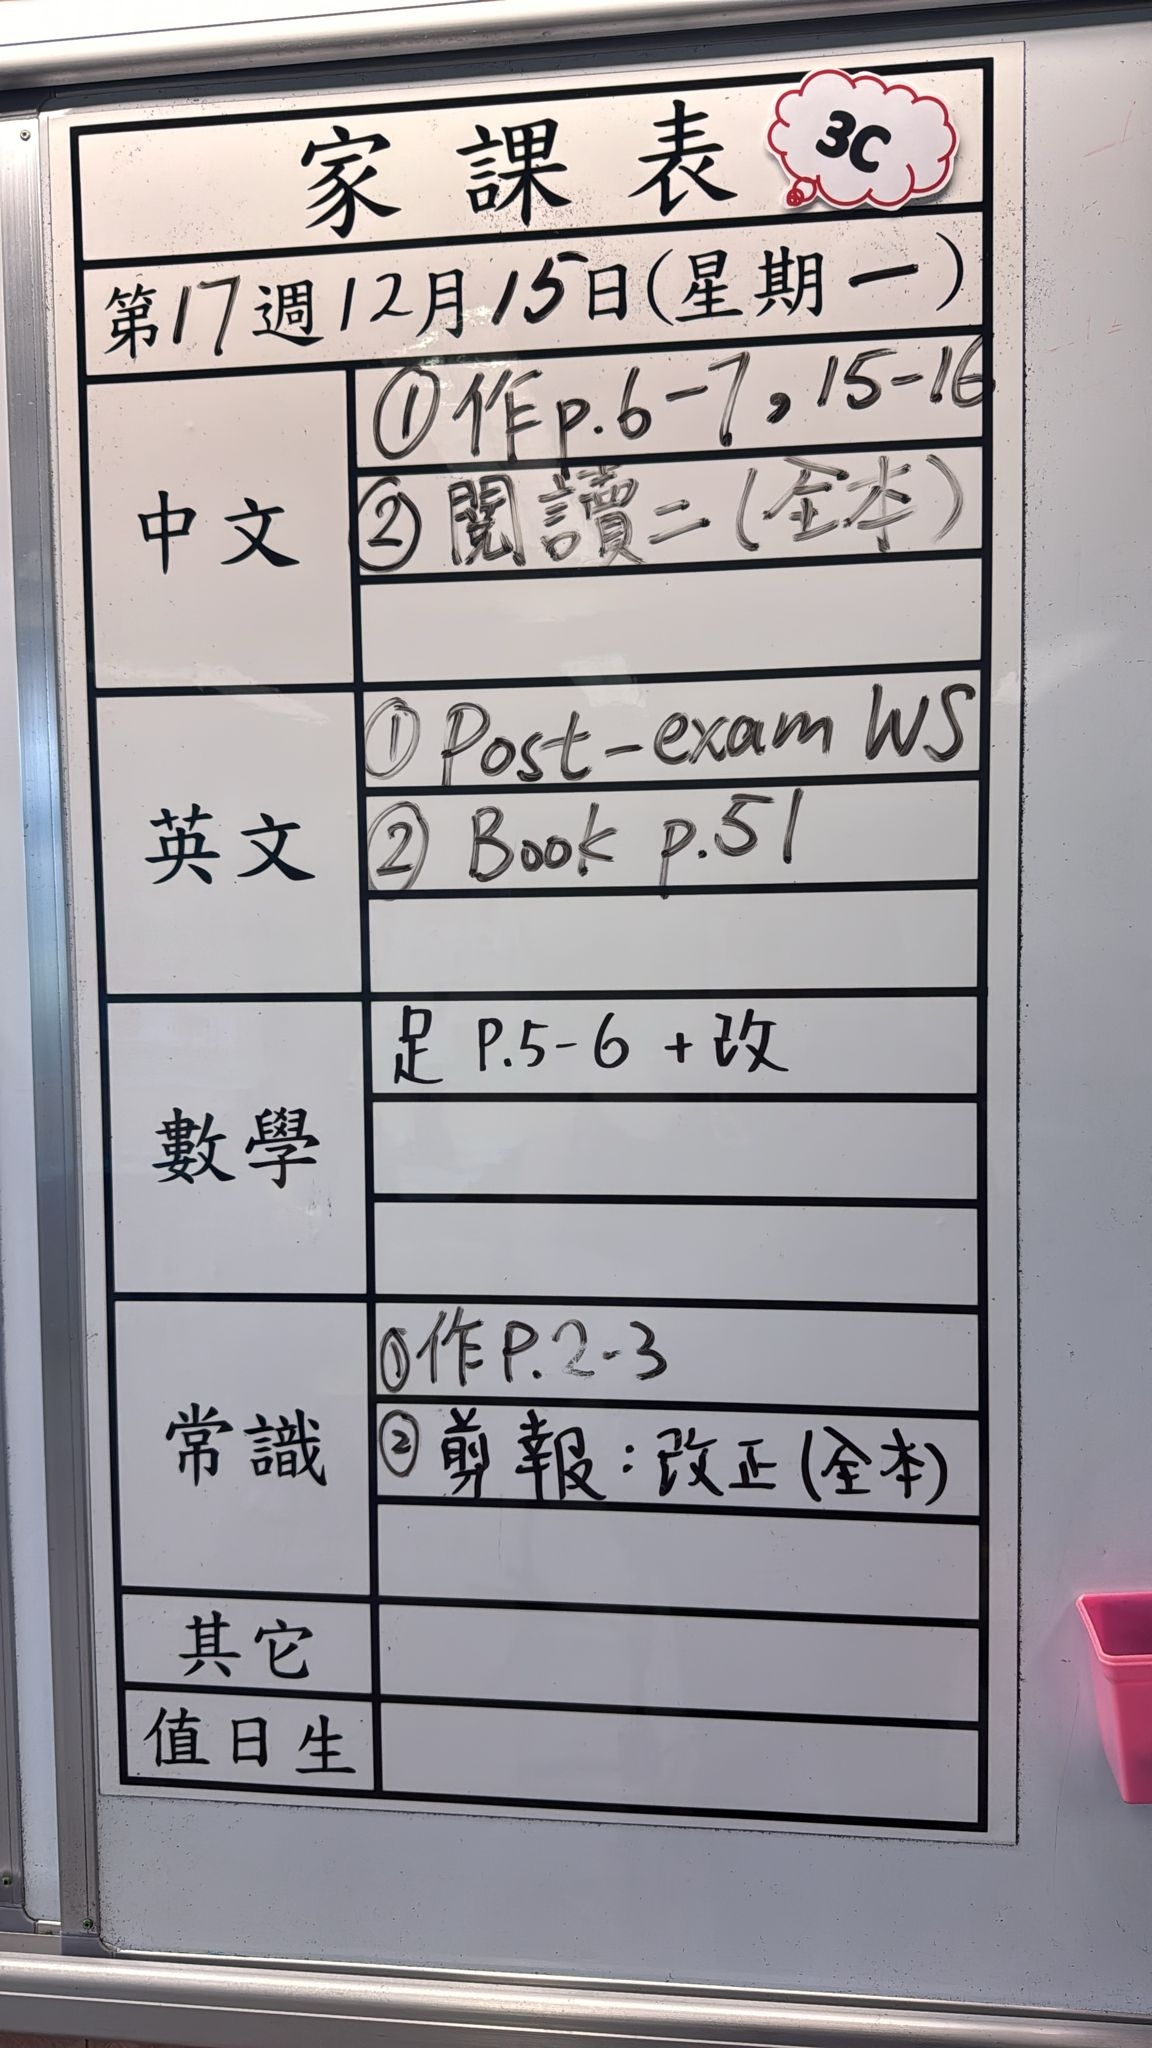 家課表 3C
第17週12月15日(星期一)
中文
①作p.6-7,15-16
②閱讀二(全本)
英文
①Post-exam WS
②Book p.51
數學
足 P.5-6 +改
常識
①作P.2-3
②剪報:改正(全本)
其它
值日生